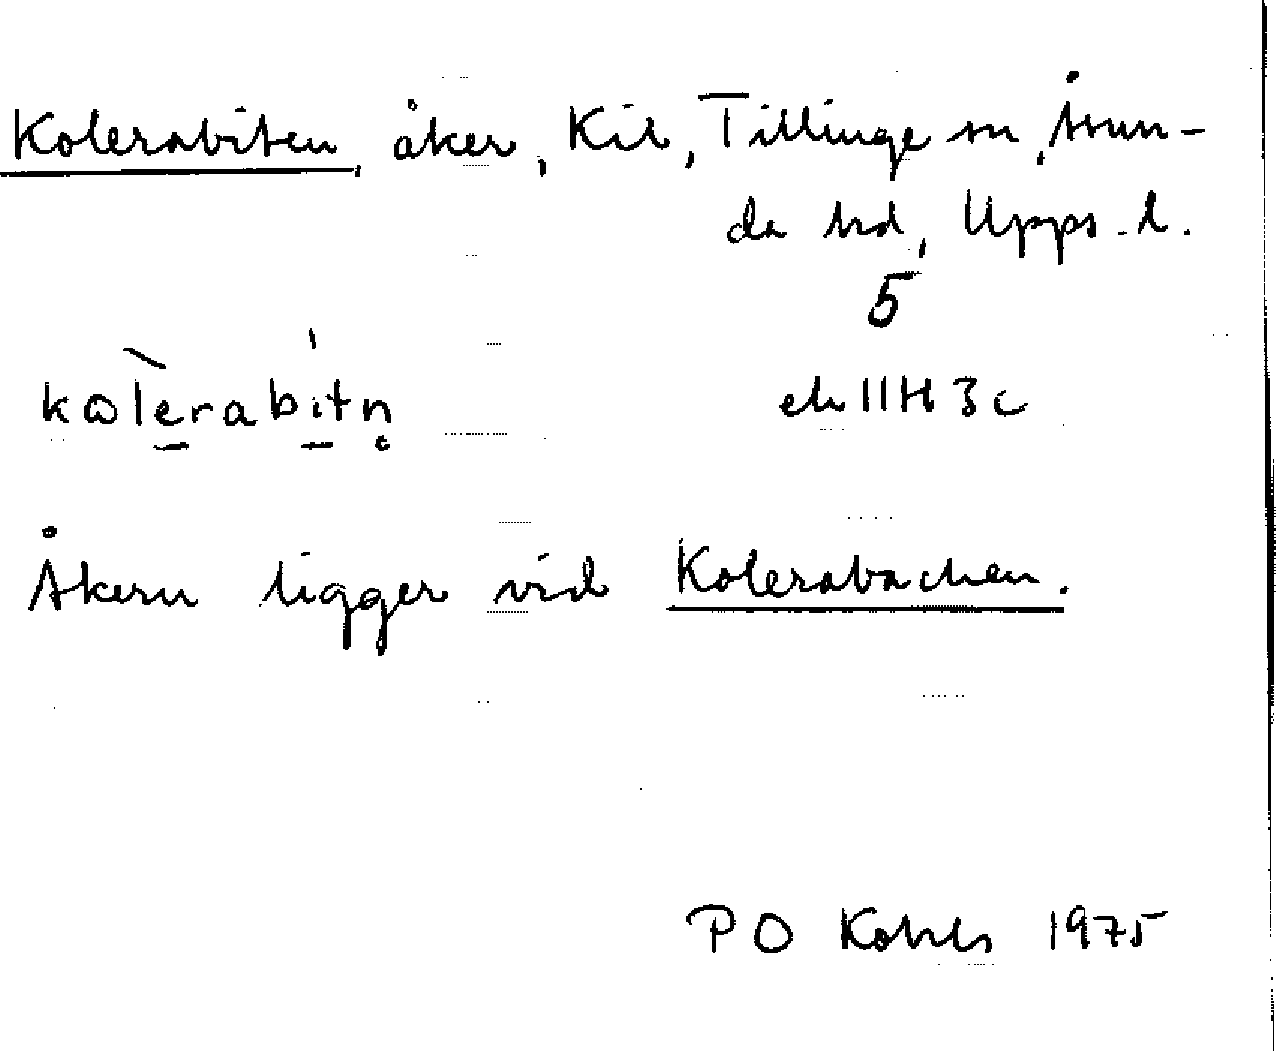 Kolerabiten, åker, Kil, Tillinge sn, Åsun-
da hd, Upps. l.
5
kolerabitn
ek 11H 3c
Åkern ligger vid Kolerabacken.
P O 1975